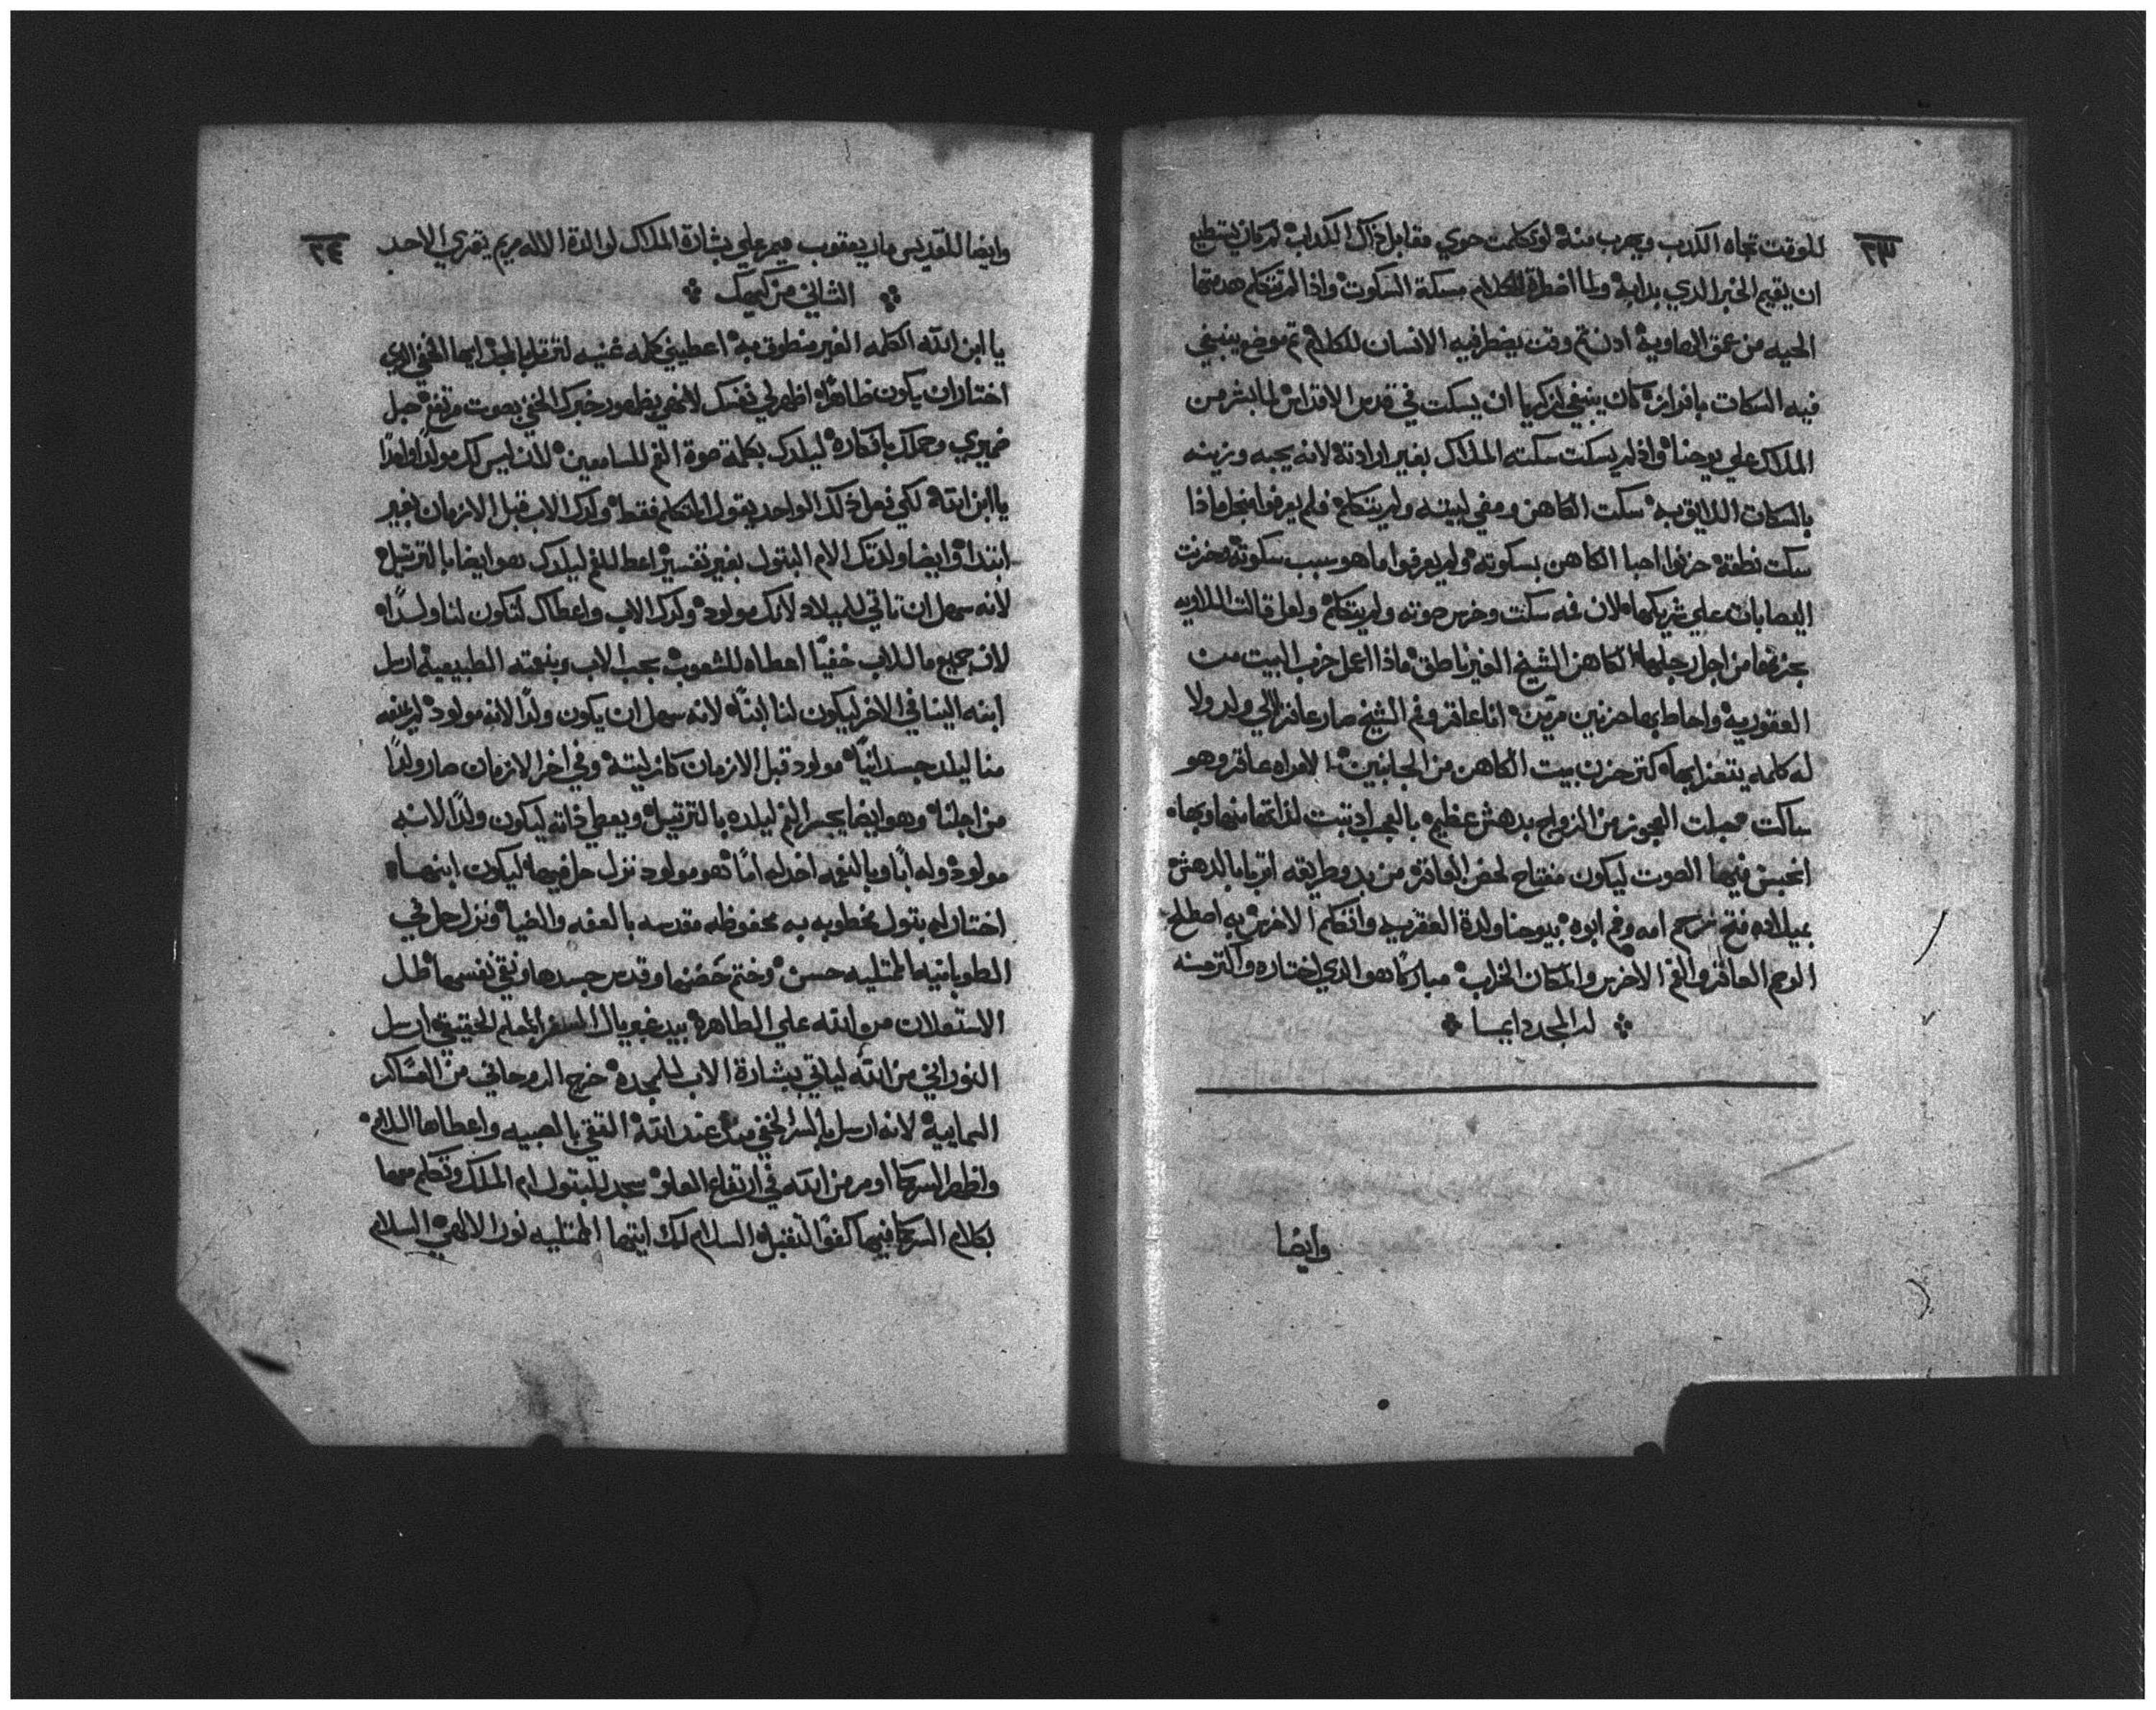 ٢٣
للوقت تجاه الكدب ويهرب منه لو تكلمت حوي مقابل ذاك الكداب لم كان يستطيع
ان يقيم الخبر الدي بدابه ولما اضطرة للكلام مسكة السكوت واذا لم تتكلم هدمتها
الحيه من عمق الهاوية ادن تم وقت يضطر فيه الانسان للكلام تم موضع ينبغي
فيه السكات بافراز كان ينبغي لزكريا ان يسكت في قدس الاقداس لما بشر من
الملاك علي يوحنا واذ لم يسكت سكته الملاك بغير ارادتة لانه يحبه وزينه
بالسكات اللايق به سكت الكاهن ومضي لبيته ولم يتكلم فلم يعرفوا لاجل ماذا
سكت نطقة حزنوا احبا الكاهن بسكوته ولم يعرفوا ما هو سبب سكوتة وحزنت
اليصابات علي شريكها لان فمه سكت وخرس صوته ولم يتكلم ولعل قالت اللاويه
بحزنها من اجل رجلها الكاهن الشيخ الغير ناطق ماذا اعمل خرب البيت من
العقورية واحاط بها حزنين مرين انا عاقر وفم الشيخ صار عاقر لا لي ولد ولا
له كلمه يتعزا بها كتر حزن بيت الكاهن من الجانبين الامراه عاقر وهو
ساكت حبلت العجوز من الزواج بدهش عظيم بالعجب
انحبس فيها الصوت ليكون مفتاح لحض العاقر من بدو طريقه ابتدا بالدهش
بميلاده فتح رحم امه وفم ابوه بيوحنا ولدة العقره وانتكلم الاخرس به اصطلح
الرحم العاقر والفم الاخرس والمكان الخراب مباركًا هو الدي اختاره واكثر حسنه
له المجد دايما
وايضا
٢٤
وايضا للقديس مار يعقوب ميمر علي بشارة الملاك لوالدة الاله مريم يقري الاحد
الثاني من كيهك
يا ابن الله الكلمه الغير منطوق به اعطيني كلمه غنيه لترتل بالمجد ايها الخفي الدي
اختار ان يكون ظاهرا اظهر لي نفسك لانهي بظهور خبرك الخفي بصوت مرتفع حبل
ضميري وحملك بافكاره ليلدك بكلمة صوة الفم للسامعين للان ليس لك مولدا واحدا
يا ابن الله لكي نعمل ذلك الواحد بقول المتكلم فقط ولدك الاب قبل الازمان بغير
ابتدا وايضا ولدتك الام البتول بغير تفسير اعط للفم ليلدك هو ايضا بالترتيل
لانه سهل ان تاتي للميلاد لانك مولود ولدك الاب واعطاك لتكون لنا ولدًا
لان جميع ما للاب خفيًا اعطاه للشعوب بحب الاب وبنعمته الطبيعية ارسل
ابنه الينا في الاخر ليكون لنا ابنًا لانه سهل ان يكون ولدًا لانه مولود
منا ليلد جسدانيًا مولود قبل الازمان كازليتة وفي اخر الازمان صار ولدًا
من اجلنا وهو ايضا يجبر الفم ليلده بالترتيل ويعطي ذاته ليكون ولدًا لانه
مولود وله ابًا وبالنعمه اخد له امًا هو مولود نزل حل فيها ليكون ابنها
اختار له بتول مخطوبه به محفوظه مقدسه بالعفه والضيا ونزل حل في
الطوبانيه الممتليه حسن وختم حضنها وقدس جسدها ونقي نفسها ظلل
الاستعلان من الله علي الطاهرة بيد غبريال السفر المعلم الحقيقي ارسل
النوراني من الله لياتي ببشارة الاب للممجدة خرج الروحاني من العساكر
السمايية لانه ارسل بالسر الخفي من عند الله التقي بالصبيه واعطاها السلام
واظهر السر كما اومر من الله في ارتفاع العلو سجد للبتول ام الملك وتكلم معها
بكلام السر كما فيها كفوًا لتقبله السلام لك ايتها الممتليه نور الالهي السلام